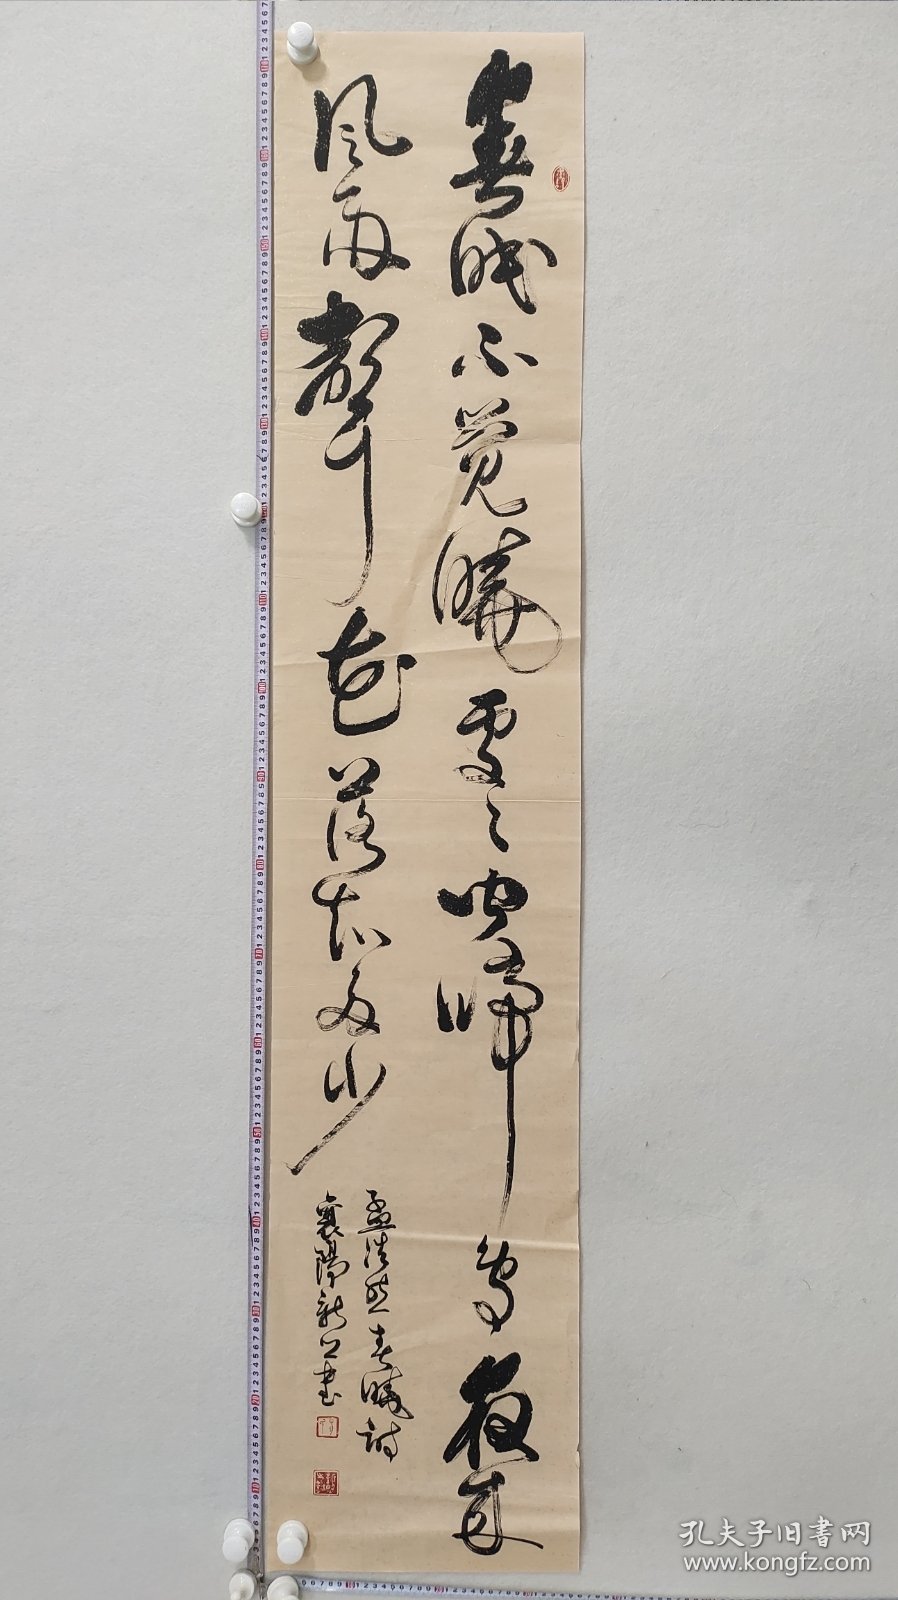 春眠不觉晓處々闻啼鸟夜来
风雨聲花落知多少
孟浩然春晓诗
襄陽新公书
孔夫子旧书网
www.kongfz.com